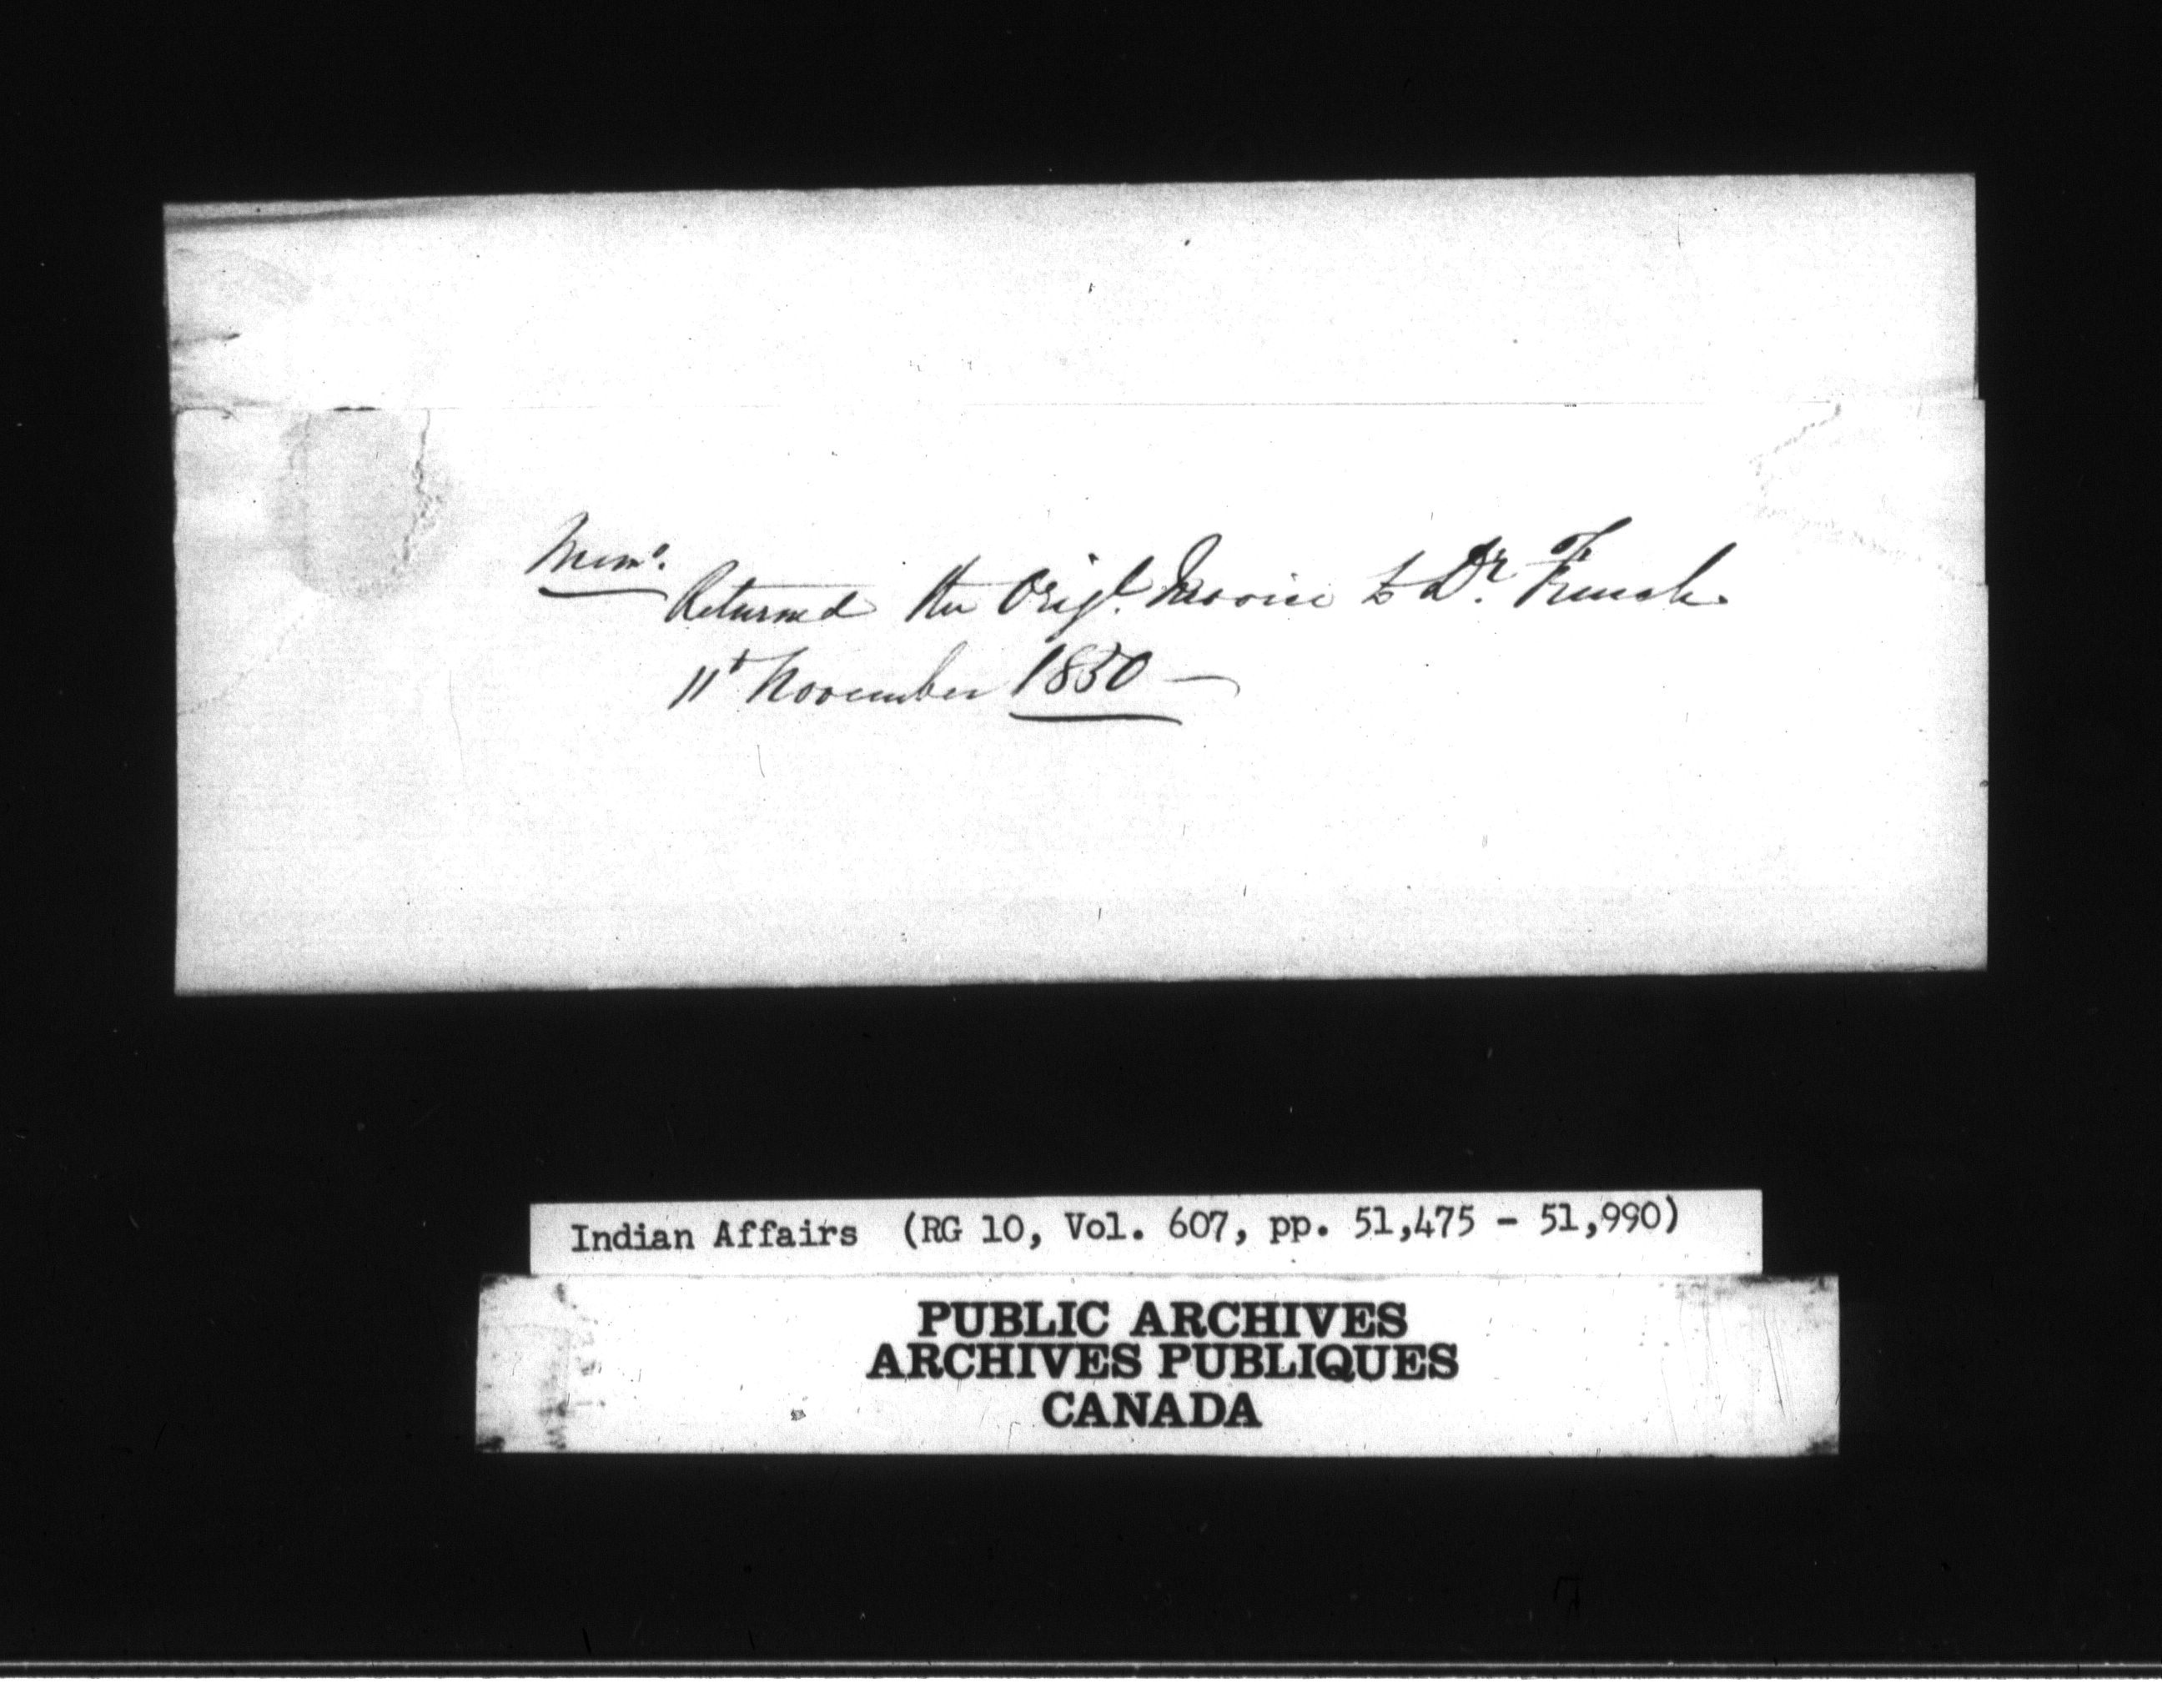 Memo.
Returned the Origl. Invoice to Dr. French
11t November 1850 —
Indian Affairs (RG 10, Vol. 607, pp. 51,475 - 51,990)
PUBLIC ARCHIVES
ARCHIVES PUBLIQUES
CANADA